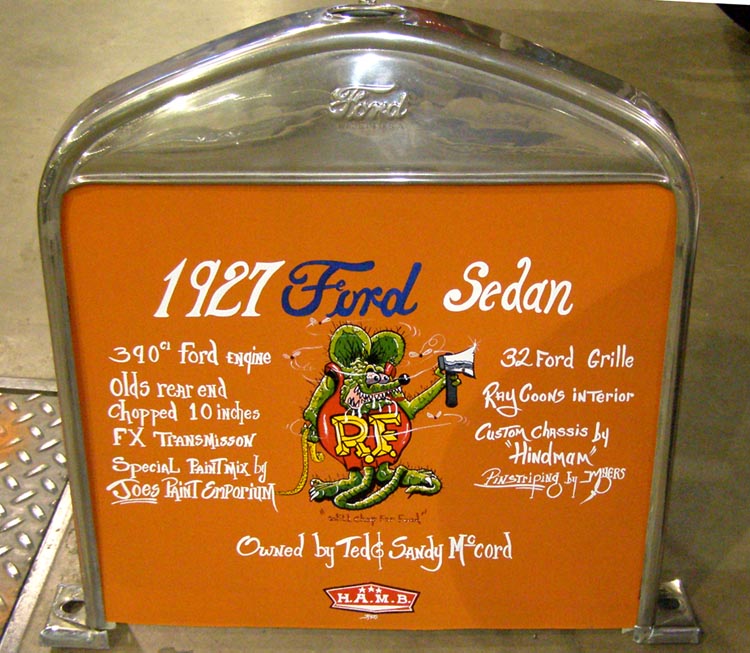 Ford
1927 Ford Sedan
390 CI Ford Engine
Olds rear end
Chopped 10 inches
FX Transmisson
Special Paint mix by
Joes Paint Emporium
32 Ford Grille
Ray Coons interior
Custom Chassis by
"Hindman"
Pinstriping by Myers
R.F.
"Will Chop For Food"
Owned by Ted & Sandy McCord
H.A.M.B.